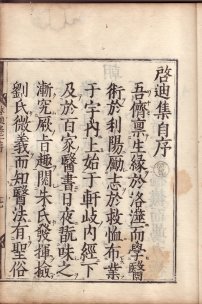 啓迪集自序
吾儕稟生緣於洛涯而學醫
術於利陽勵志於救恤布業
于宇内上始于軒岐内經下
及於百家醫書日夜翫味之
漸究厥旨趣閱朱氏發揮撿
劉氏微義而知醫法有聖俗